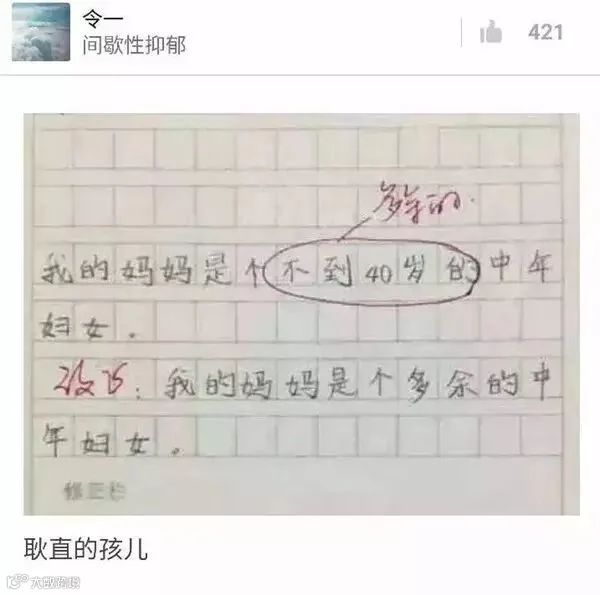 令一
间歇性抑郁
421
多余的.
我的妈妈是个不到40岁的中年
妇女.
改正:我的妈妈是个多余的中
年妇女。
修正栏
耿直的孩儿